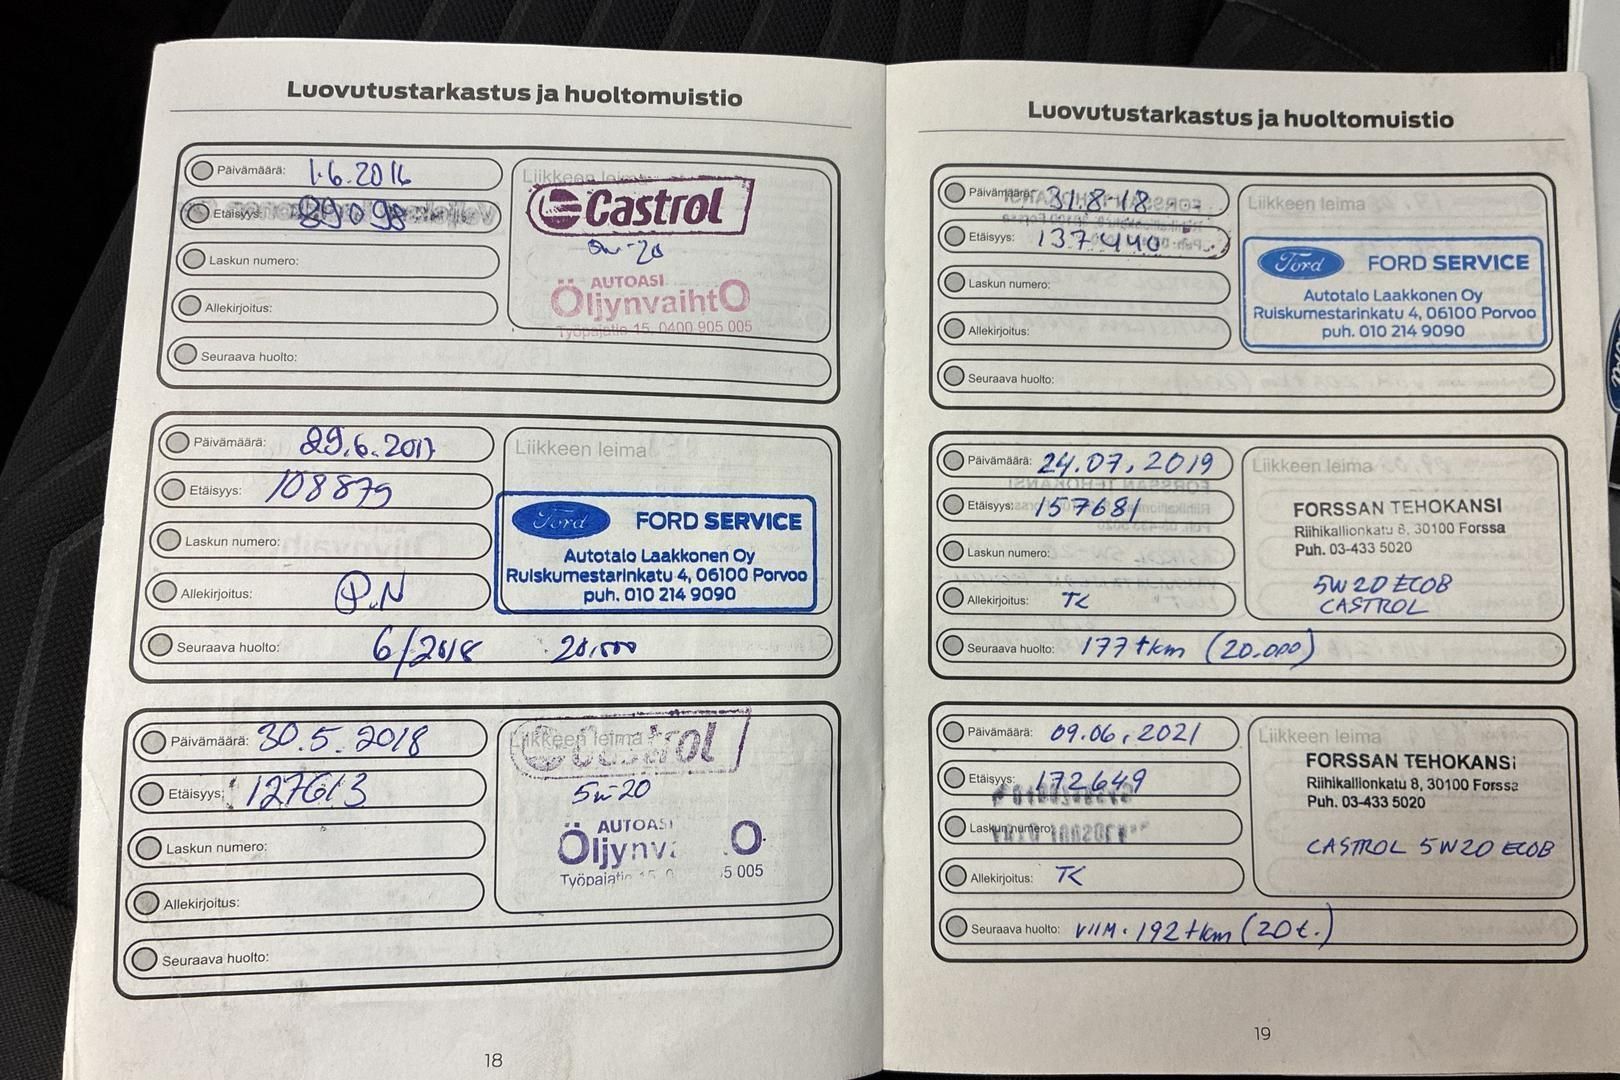 Luovutustarkastus ja huoltomuistio
Päivämäärä: 1.6.2016
Etäisyys: 89098
Laskun numero:
Allekirjoitus:
Seuraava huolto:
Liikkeen leima
Castrol
5w-20
AUTOASI
ÖljynvaihtO
Työpajatie 15 0400 905 005
Päivämäärä: 29.6.2017
Etäisyys: 108879
Laskun numero:
Allekirjoitus: P.N
Seuraava huolto: 6/2018 20,000
Liikkeen leima
Ford FORD SERVICE
Autotalo Laakkonen Oy
Ruiskumestarinkatu 4, 06100 Porvoo
puh. 010 214 9090
Päivämäärä: 30.5.2018
Etäisyys: 127613
Laskun numero:
Allekirjoitus:
Seuraava huolto:
Liikkeen leima
Castrol
5w-20
AUTOASI
18
Luovutustarkastus ja huoltomuistio
Päivämäärä: 31.8.18
Etäisyys: 137440
Laskun numero:
Allekirjoitus:
Seuraava huolto:
Liikkeen leima
Ford FORD SERVICE
Autotalo Laakkonen Oy
Ruiskumestarinkatu 4, 06100 Porvoo
puh. 010 214 9090
Päivämäärä: 24.07.2019
Etäisyys: 157681
Laskun numero:
Allekirjoitus: TK
Seuraava huolto: 177 tkm (20.000)
Liikkeen leima
FORSSAN TEHOKANSI
Riihikallionkatu 8, 30100 Forssa
Puh. 03-433 5020
5W20 ECOB
CASTROL
Päivämäärä: 09.06.2021
Etäisyys: 172649
Laskun numero:
Allekirjoitus: TK
Seuraava huolto: VIIM. 192 tkm (20 t.)
Liikkeen leima
FORSSAN TEHOKANSI
Riihikallionkatu 8, 30100 Forssa
Puh. 03-433 5020
CASTROL 5W20 ECOB
19